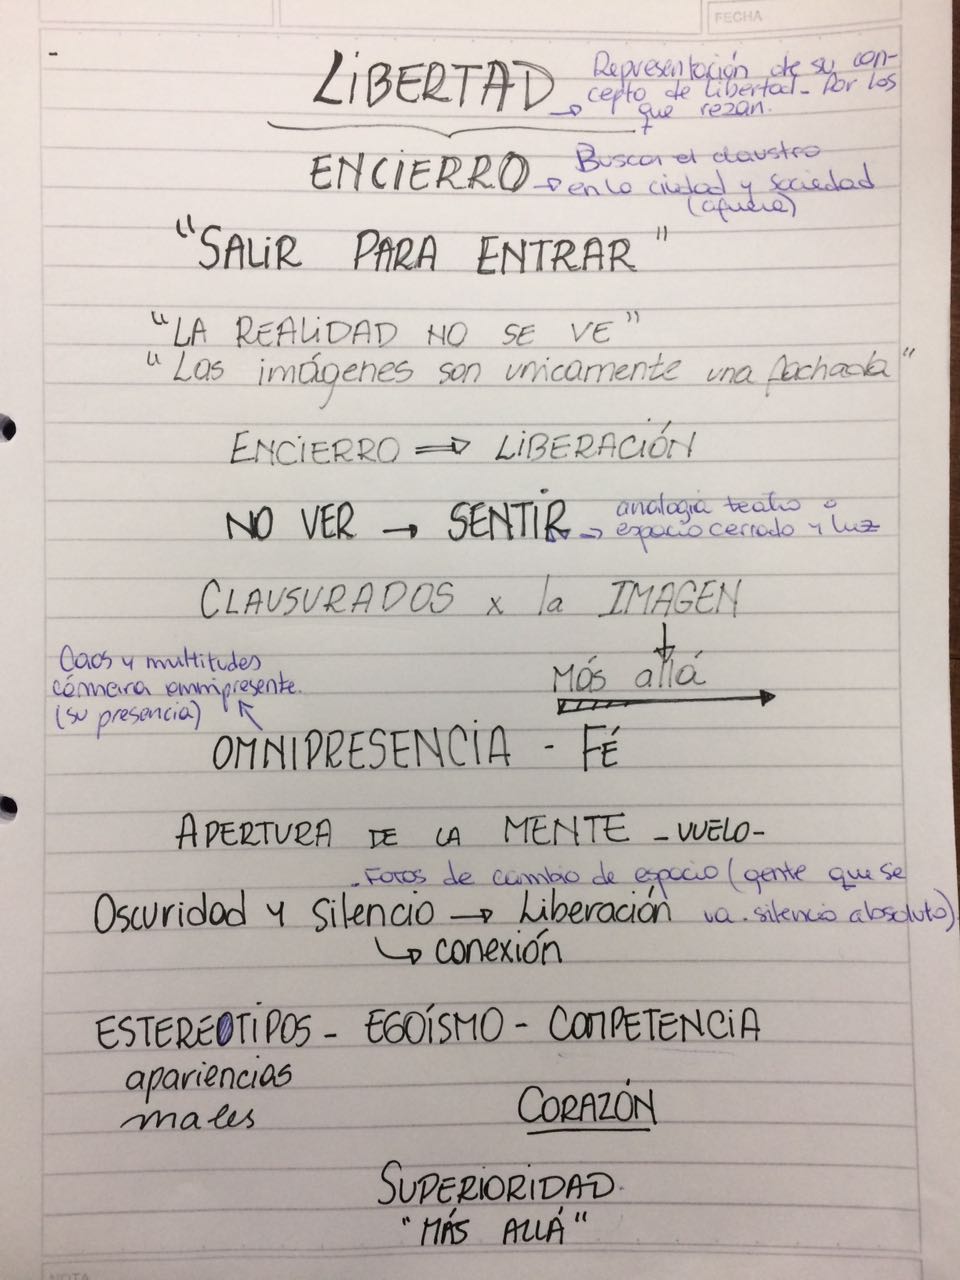 FECHA
LIBERTAD → Representación de su con-
cepto de libertad - Por los
que rezan.
+
ENCIERRO → Buscar el claustro
en la ciudad y sociedad
(afuera)
"SALIR PARA ENTRAR"
"LA REALIDAD NO SE VE"
"Las imágenes son unicamente una fachada"
ENCIERRO ⇒ LIBERACIÓN
NO VER → SENTIR → analogia teatro o
espacio cerrado y luz
CLAUSURADOS x la IMAGEN
↓
Más allá
Caos y multitudes
cámara omnipresente.
(su presencia)
OMNIPRESENCIA - FÉ
APERTURA DE LA MENTE - VUELO -
. Fotos de cambio de espacio (gente que se
va . silencio absoluto)
Oscuridad y silencio → Liberación
↳ conexión
ESTEREOTIPOS - EGOÍSMO - COMPETENCIA
apariencias
males
CORAZÓN
SUPERIORIDAD.
"MÁS ALLÁ"
NOTA